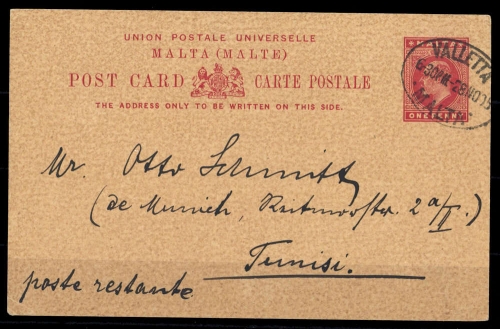 UNION POSTALE UNIVERSELLE
MALTA (MALTE)
POST CARD CARTE POSTALE
THE ADDRESS ONLY TO BE WRITTEN ON THIS SIDE.
ONE PENNY
VALLETTA
MALTA
Mr. Otto Schmitt
(de Munich, 2a/II.)
Tunisi.
poste restante